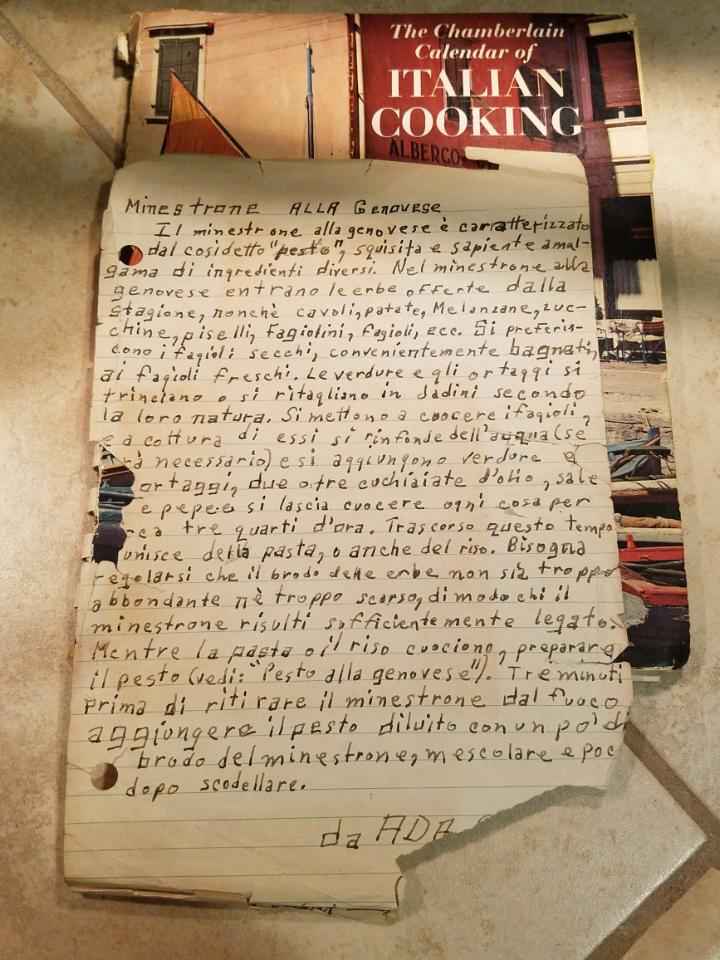 The Chamberlain
Calendar of
ITALIAN
COOKING
ALBERGO
Minestrone ALLA Genovese
Il minestrone alla genovese è caratterizzato
dal cosidetto "pesto", squisita e sapiente amal-
gama di ingredienti diversi. Nel minestrone alla
genovese entrano le erbe offerte dalla
stagione, nonchè cavoli, patate, Melanzane, zuc-
chine, piselli, Fagiolini, Fagioli, ecc. Si preferis-
cono i fagioli secchi, convenientemente bagnati,
ai fagioli freschi. Le verdure e gli ortaggi si
trinciano o si ritagliano in dadini secondo
la loro natura. Si mettono a cuocere i fagioli,
e a cottura di essi si rinfonde dell'acqua (se
rà necessario) e si aggiungono verdure e
ortaggi, due o tre cuchiaiate d'olio, sale
e pepe e si lascia cuocere ogni cosa per
rca tre quarti d'ora. Trascorso questo tempo
unisce della pasta, o anche del riso. Bisogna
regolarsi che il brodo delle erbe non sia troppo
abbondante nè troppo scarso, di modo chi il
minestrone risulti sufficientemente legato.
Mentre la pasta o il riso cuociono, preparare
il pesto (vedi: "Pesto alla genovese"). Tre minuti
prima di ritirare il minestrone dal fuoco
aggiungere il pesto diluito con un po' di
brodo del minestrone, mescolare e poc
dopo scodellare.
da ADA